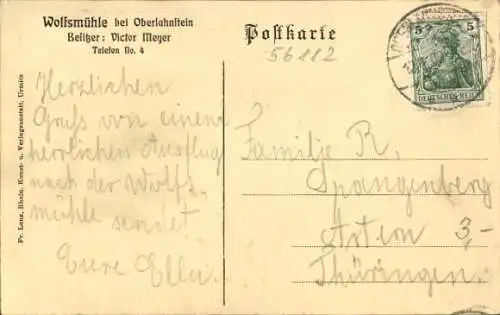 Wolfsmühle bei Oberlahnstein
Besitzer: Victor Meyer
Telefon No. 4
Postkarte
56112
5 5
DEUTSCHES REICH
Herzlichen
Gruß von einem
herrlichen Ausflug
nach der Wolfs
mühle sendet
Eure Ella.
Familie R.
Spangenberg
Artern
3,-
Thüringen.
Fr. Lenz, Rhein. Kunst- u. Verlagsanstalt, Urmitz